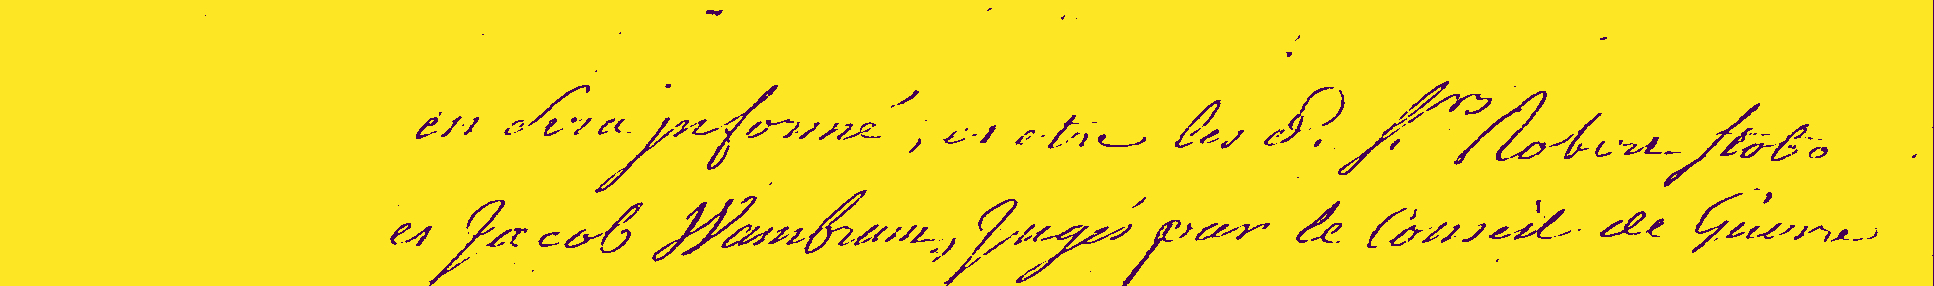 en sera informé, et etre les d. S.rs Robert Stobo
et Jacob Wambram, Jugés par le Conseil de Guerre